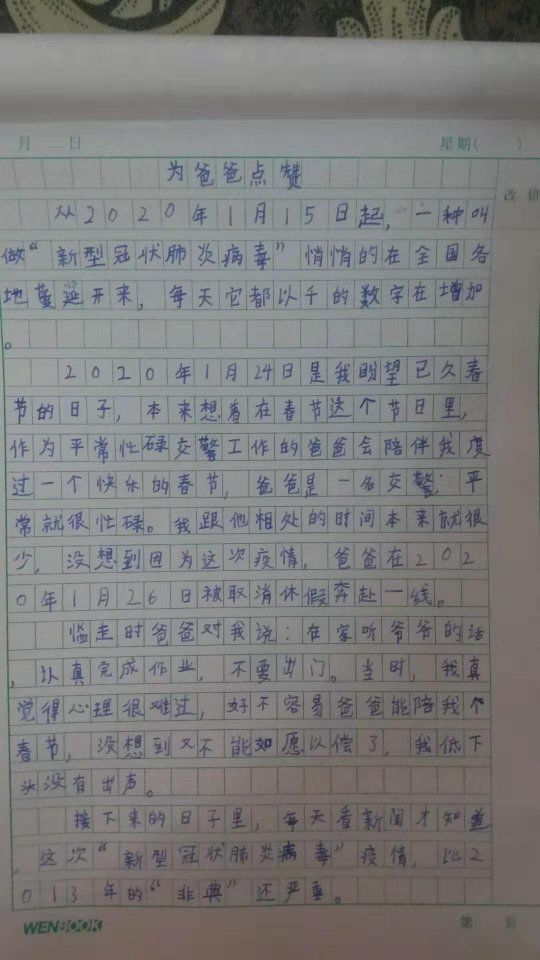 月 日 星期( )
为爸爸点赞
改错
从2020年1月15日起，一种叫
做“新型冠状肺炎病毒”悄悄的在全国各
地蔓延开来，每天它都以千的数字在增加
。
2020年1月24日是我盼望已久春
节的日子，本来想着在春节这个节日里，
作为平常忙碌交警工作的爸爸会陪伴我度
过一个快乐的春节，爸爸是一名交警，平
常就很忙碌。我跟他相处的时间本来就很
少，没想到因为这次疫情，爸爸在202
0年1月26日被取消休假奔赴一线。
临走时爸爸对我说：在家听爷爷的话
，认真完成作业，不要出门。当时，我真
觉得心理很难过，好不容易爸爸能陪我个
春节，没想到又不能如愿以偿了，我低下
头没有出声。
接下来的日子里，每天看新闻才知道
，这次“新型冠状肺炎病毒”疫情，比2
013年的“非典”还严重。
WENBOOK 第 页